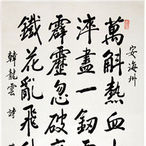 安海州
萬斛熱血十
淬盡一釰
霹靂忽破
鐵花亂飛
韓龍雲 詩